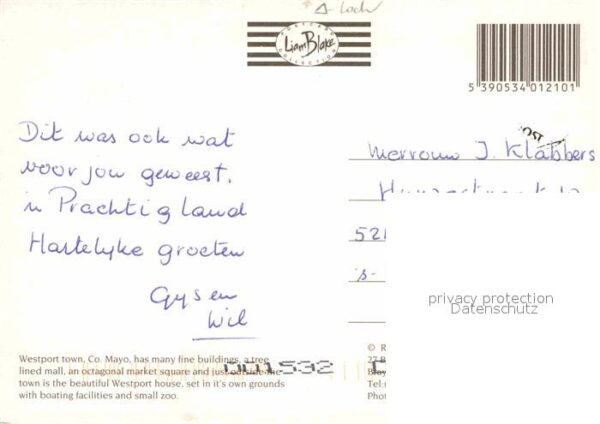 Liam Blake
POSTCARD
COLLECTION
5 390534 012101
Dit was ook wat
voor jou geweest.
in Prachtig land
Hartelijke groeten
Gijs en
Wil
Mevrouw J. Klabbers
521
's-
privacy protection
Datenschutz
Westport town, Co. Mayo, has many fine buildings, a tree
lined mall, an octagonal market square and just outside the
town is the beautiful Westport house, set in it's own grounds
with boating facilities and small zoo.
001532
© R
27 B
Tel:
Phot